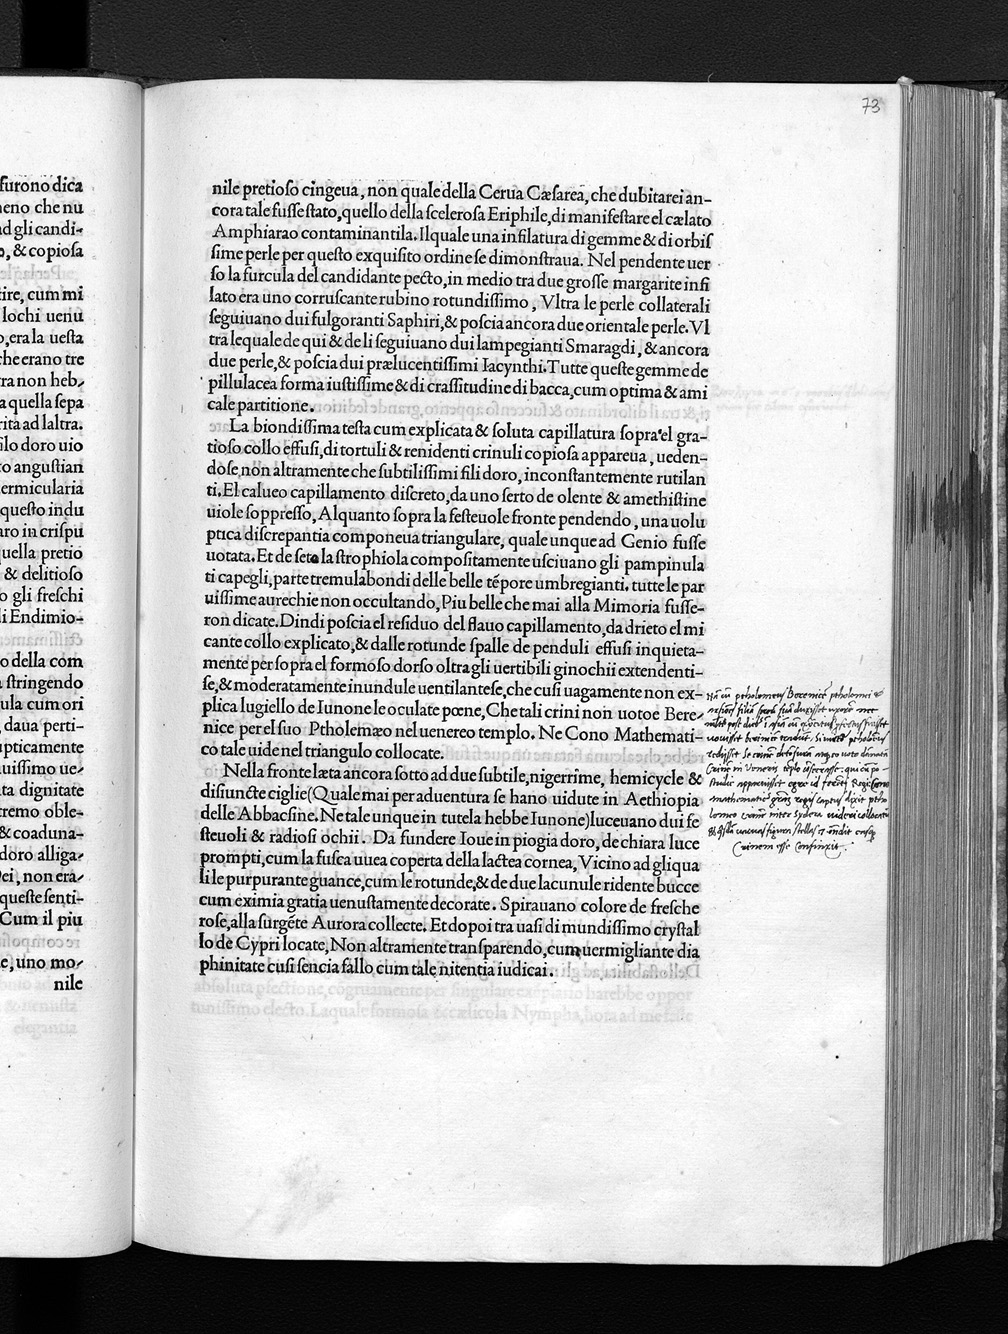 furono dica
meno che nu
ad gli candi-
o, & copiosa
tire, cum mi
lochi uenu
o, era la uesta
che erano tre
tra non heb-
a quella sepa
rita ad laltra.
filo doro uio
to angustiari
ermicularia
questo indu
aro in crispu
uella pretio
& delitioso
o gli freschi
di Endimio-
o della com
a stringendo
gula cum ori
, daua perti-
upticamente
uissimo ue-
ta dignitate
tremo oble-
& coaduna-
doro alliga-
Dei, non era-
queste senti-
Cum il piu
e, uno mo-
nile
73
nile pretioſo cingeua, non quale della Cerua Cæſarea, che dubitarei an-
cora tale fuſſe ſtato, quello della ſceleroſa Eriphile, di manifeſtare el cælato
Amphiarao contaminantila. Il quale una infilatura di gemme & di orbiſ
ſime perle per queſto exquiſito ordine ſe dimonſtraua. Nel pendente uer
ſo la furcula del candidante pecto, in medio tra due groſſe margarite infi
lato era uno corruſcante rubino rotundiſſimo, Vltra le perle collaterali
ſeguiuano dui fulgoranti Saphiri, & poſcia ancora due orientale perle. Vl
tra le quale de qui & de li ſeguiuano dui lampegianti Smaragdi, & ancora
due perle, & poſcia dui prælucentiſſimi Iacynthi. Tutte queſte gemme de
pillulacea forma iuſtiſſime & di craſſitudine di bacca, cum optima & ami
cale partitione.
La biondiſſima teſta cum explicata & ſoluta capillatura ſopra el gra-
tioſo collo effuſi, di tortuli & renidenti crinuli copioſa appareua, ueden-
doſe, non altramente che ſubtiliſſimi fili doro, inconſtantemente rutilan
ti. El calueo capillamento diſcreto, da uno ſerto de olente & amethiſtine
uiole ſoppreſſo, Alquanto ſopra la feſteuole fronte pendendo, una uolu
ptica diſcrepantia componeua triangulare, quale unque ad Genio fuſſe
uotata. Et de ſeto la ſtrophiola compoſitamente uſciuano gli pampinula
ti capegli, parte tremulabondi delle belle tẽpore umbregianti. tutte le par
uiſſime aurechie non occultando, Piu belle che mai alla Mimoria fuſſe-
ron dicate. Dindi poſcia el reſiduo del flauo capillamento, da drieto el mi
cante collo explicato, & dalle rotunde ſpalle de penduli effuſi inquieta-
mente per ſopra el formoſo dorſo oltra gli uertibili ginochii extendenti-
ſe, & moderatamente inundule uentilanteſe, che cuſi uagamente non ex-
plica lugiello de Iunone le oculate pœne, Che tali crini non uotoe Bere-
nice per el ſuo Ptholemæo nel uenereo templo. Ne Cono Mathemati-
co tale uide nel triangulo collocate.
Nella fronte læta ancora ſotto ad due ſubtile, nigerrime, hemicycle &
diſiuncte ciglie (Quale mai per aduentura ſe hano uidute in Aethiopia
delle Abbacſine. Ne tale unque in tutela hebbe Iunone) luceuano dui fe
ſteuoli & radioſi ochii. Da fundere Ioue in piogia doro, de chiara luce
prompti, cum la fuſca uuea coperta della lactea cornea, Vicino ad gli qua
li le purpurante guance, cum le rotunde, & de due lacunule ridente bucce
cum eximia gratia uenuſtamente decorate. Spirauano colore de freſche
roſe, alla ſurgẽte Aurora collecte. Et dopoi tra uaſi di mundiſſimo cryſtal
lo de Cypri locate, Non altramente tranſparendo, cum uermigliante dia
phinitate cuſi ſencia fallo cum tale nitentia iudicai.
ptholomeus Berenice ptholomei
Crinem esse